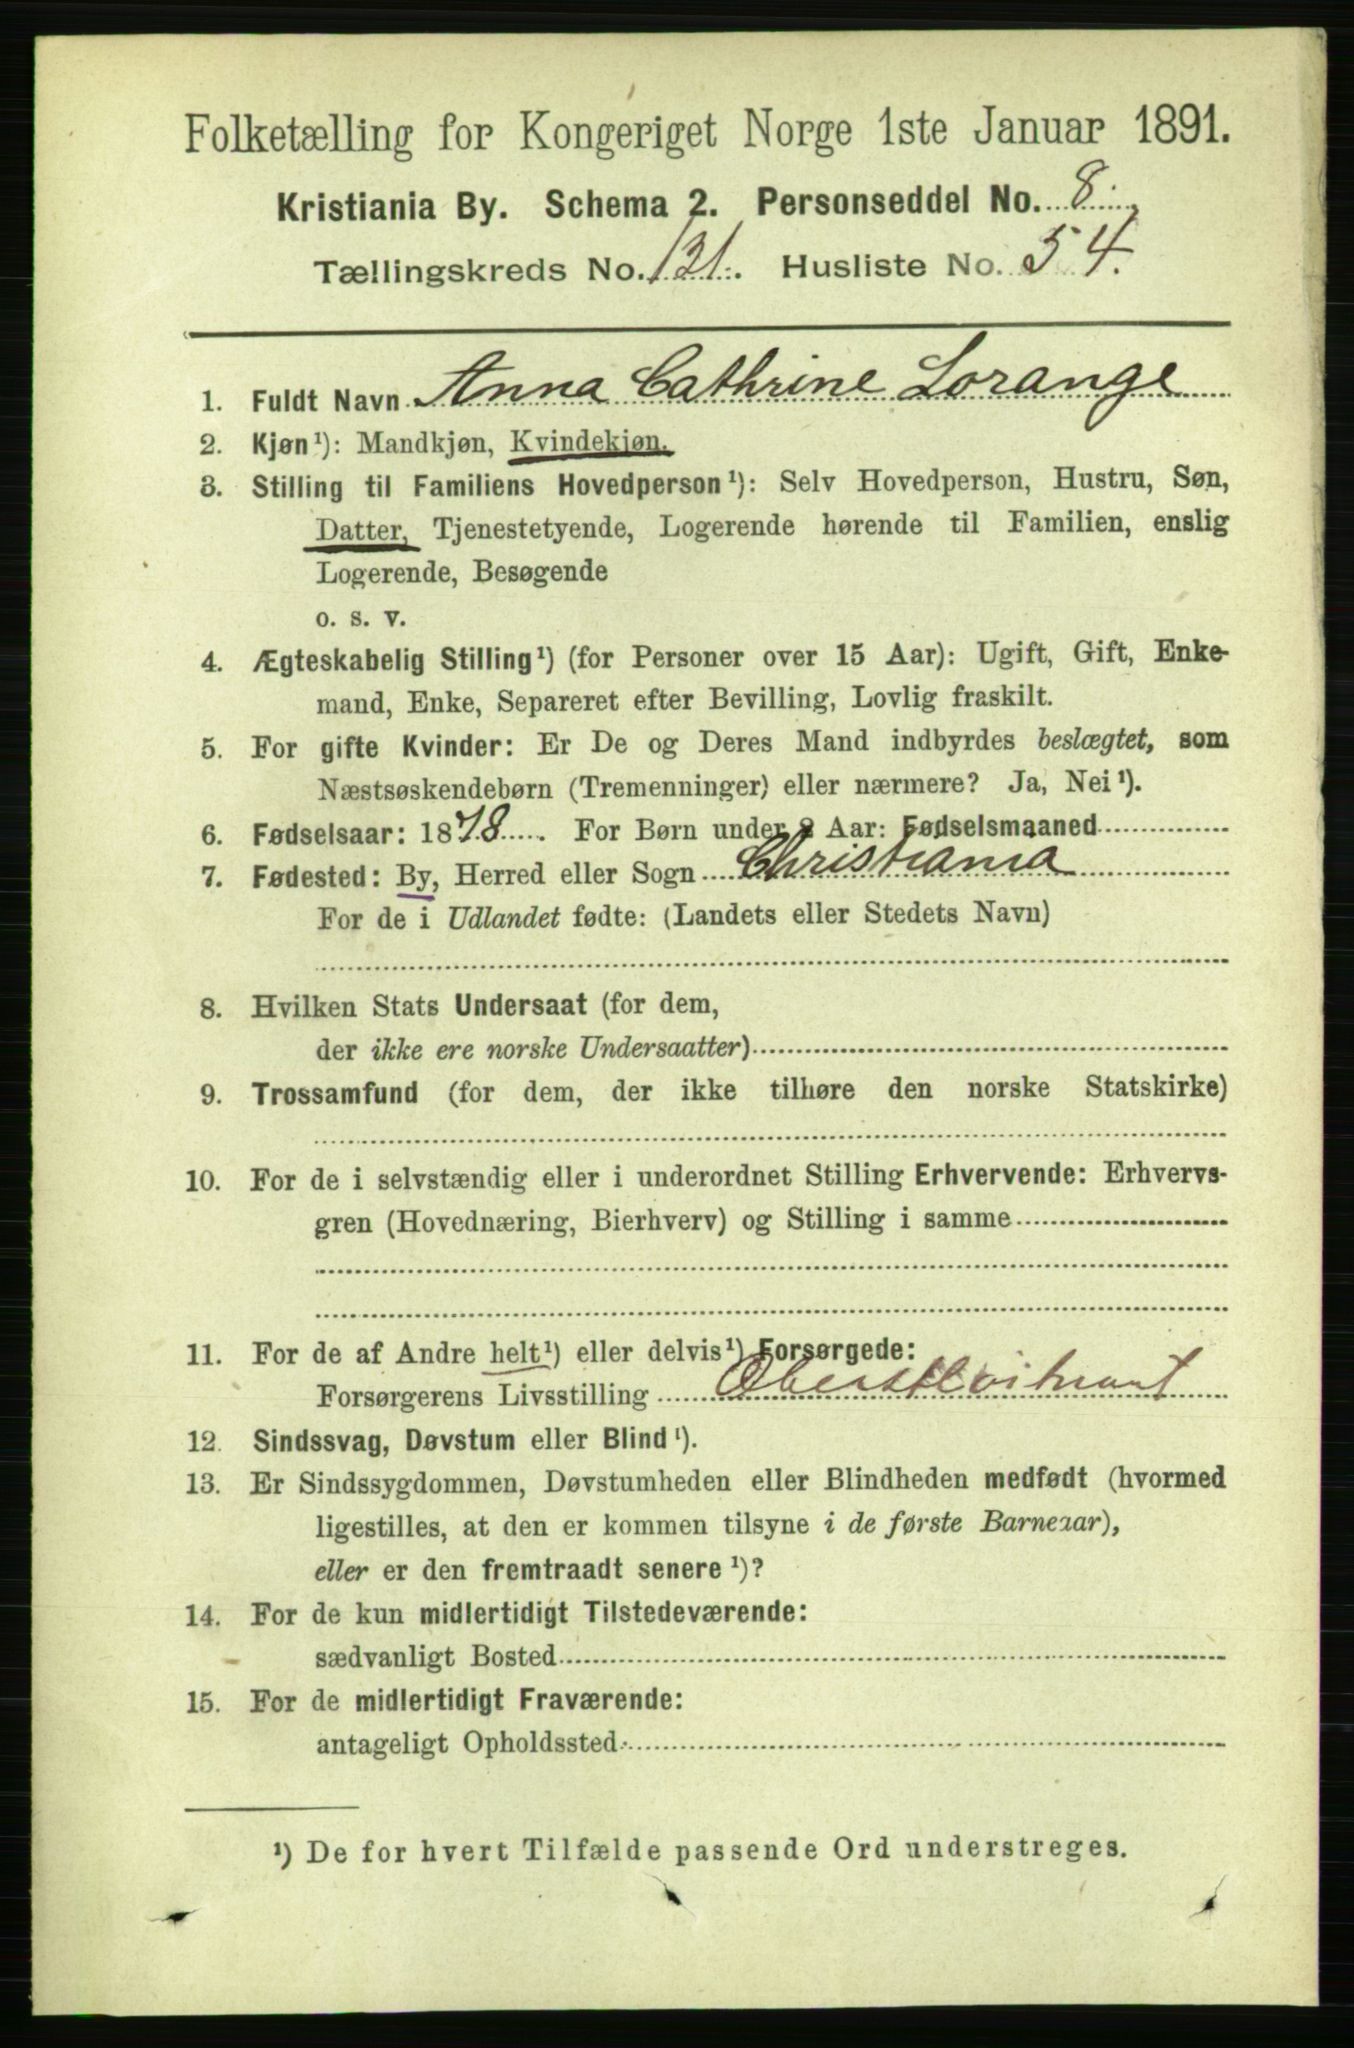 Folketælling for Kongeriget Norge 1ste Januar 1891.
Kristiania By. Schema 2. Personseddel No. 8.
Tællingskreds No. 131. Husliste No. 54.
1. Fuldt Navn Anna Cathrine Lorange
2. Kjøn¹): Mandkjøn, Kvindekjøn.
3. Stilling til Familiens Hovedperson¹): Selv Hovedperson, Hustru, Søn,
Datter, Tjenestetyende, Logerende hørende til Familien, enslig
Logerende, Besøgende
o. s. v.
4. Ægteskabelig Stilling¹) (for Personer over 15 Aar): Ugift, Gift, Enke-
mand, Enke, Separeret efter Bevilling, Lovlig fraskilt.
5. For gifte Kvinder: Er De og Deres Mand indbyrdes beslægtet, som
Næstsøskendebørn (Tremenninger) eller nærmere? Ja, Nei¹).
6. Fødselsaar: 1878. For Børn under 2 Aar: Fødselsmaaned
7. Fødested: By, Herred eller Sogn Christiania
For de i Udlandet fødte: (Landets eller Stedets Navn)
8. Hvilken Stats Undersaat (for dem,
der ikke ere norske Undersaatter)
9. Trossamfund (for dem, der ikke tilhøre den norske Statskirke)
10. For de i selvstændig eller i underordnet Stilling Erhvervende: Erhvervs-
gren (Hovednæring, Bierhverv) og Stilling i samme
11. For de af Andre helt¹) eller delvis¹) Forsørgede:
Forsørgerens Livsstilling Oberstløitnant
12. Sindssvag, Døvstum eller Blind¹).
13. Er Sindssygdommen, Døvstumheden eller Blindheden medfødt (hvormed
ligestilles, at den er kommen tilsyne i de første Barneaar),
eller er den fremtraadt senere¹)?
14. For de kun midlertidigt Tilstedeværende:
sædvanligt Bosted
15. For de midlertidigt Fraværende:
antageligt Opholdssted
¹) De for hvert Tilfælde passende Ord understreges.